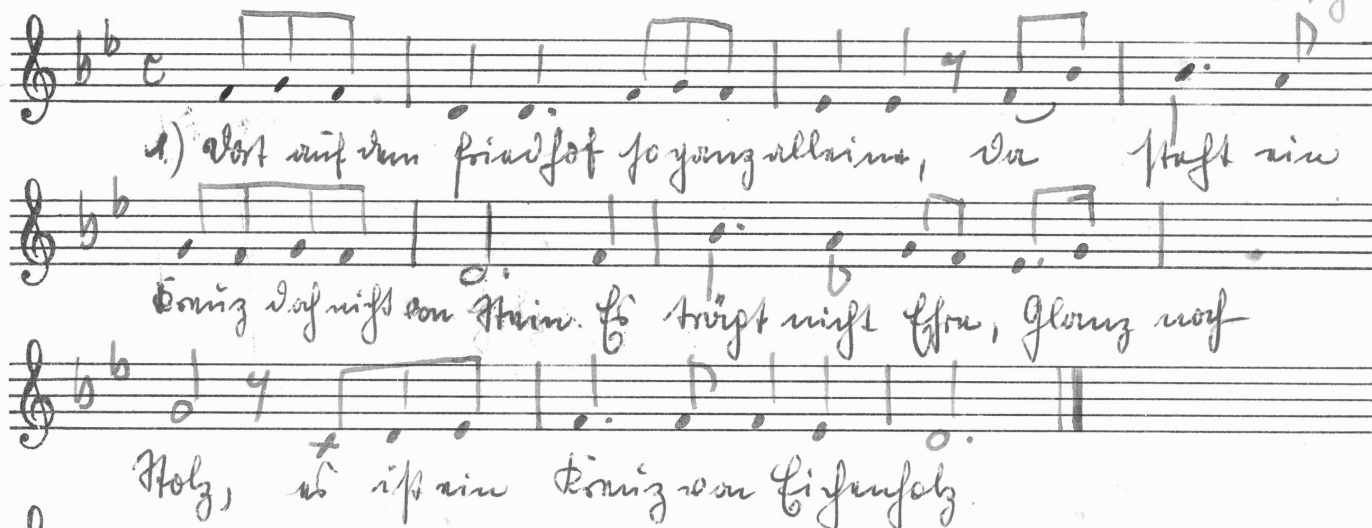 1) Dort auf dem Friedhof so ganz alleine, da steht ein
Kreuz doch nicht von Stein. Es trägt nicht Ehre, Glanz noch
Stolz, es ist ein Kreuz von Eichenholz